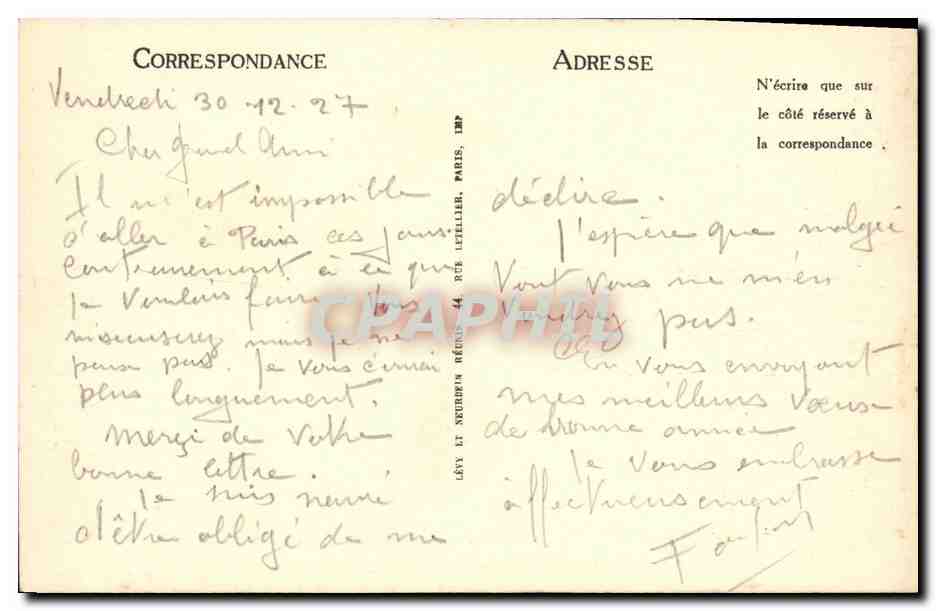 CORRESPONDANCE
Vendredi 30-12-27
Cher Grand Ami
Il m'est impossible
d'aller à Paris ces jours
contrairement à ce que
je voulais faire. Vous
m'excuserez mais je ne
peux pas. Je vous écrirai
plus longuement.
Merçi de votre
bonne lettre.
Je suis navré
d'être obligé de me
LÉVY ET NEURDEIN RÉUNIS 44, RUE LETELLIER, PARIS, IMP
ADRESSE
N'écrire que sur
le côté réservé à
la correspondance.
dédire.
J'espère que malgré
tout vous ne m'en
voudrez pas.
En vous envoyant
mes meilleurs vœux
de bonne année
Je vous embrasse
affectueusement
CPAPHIL